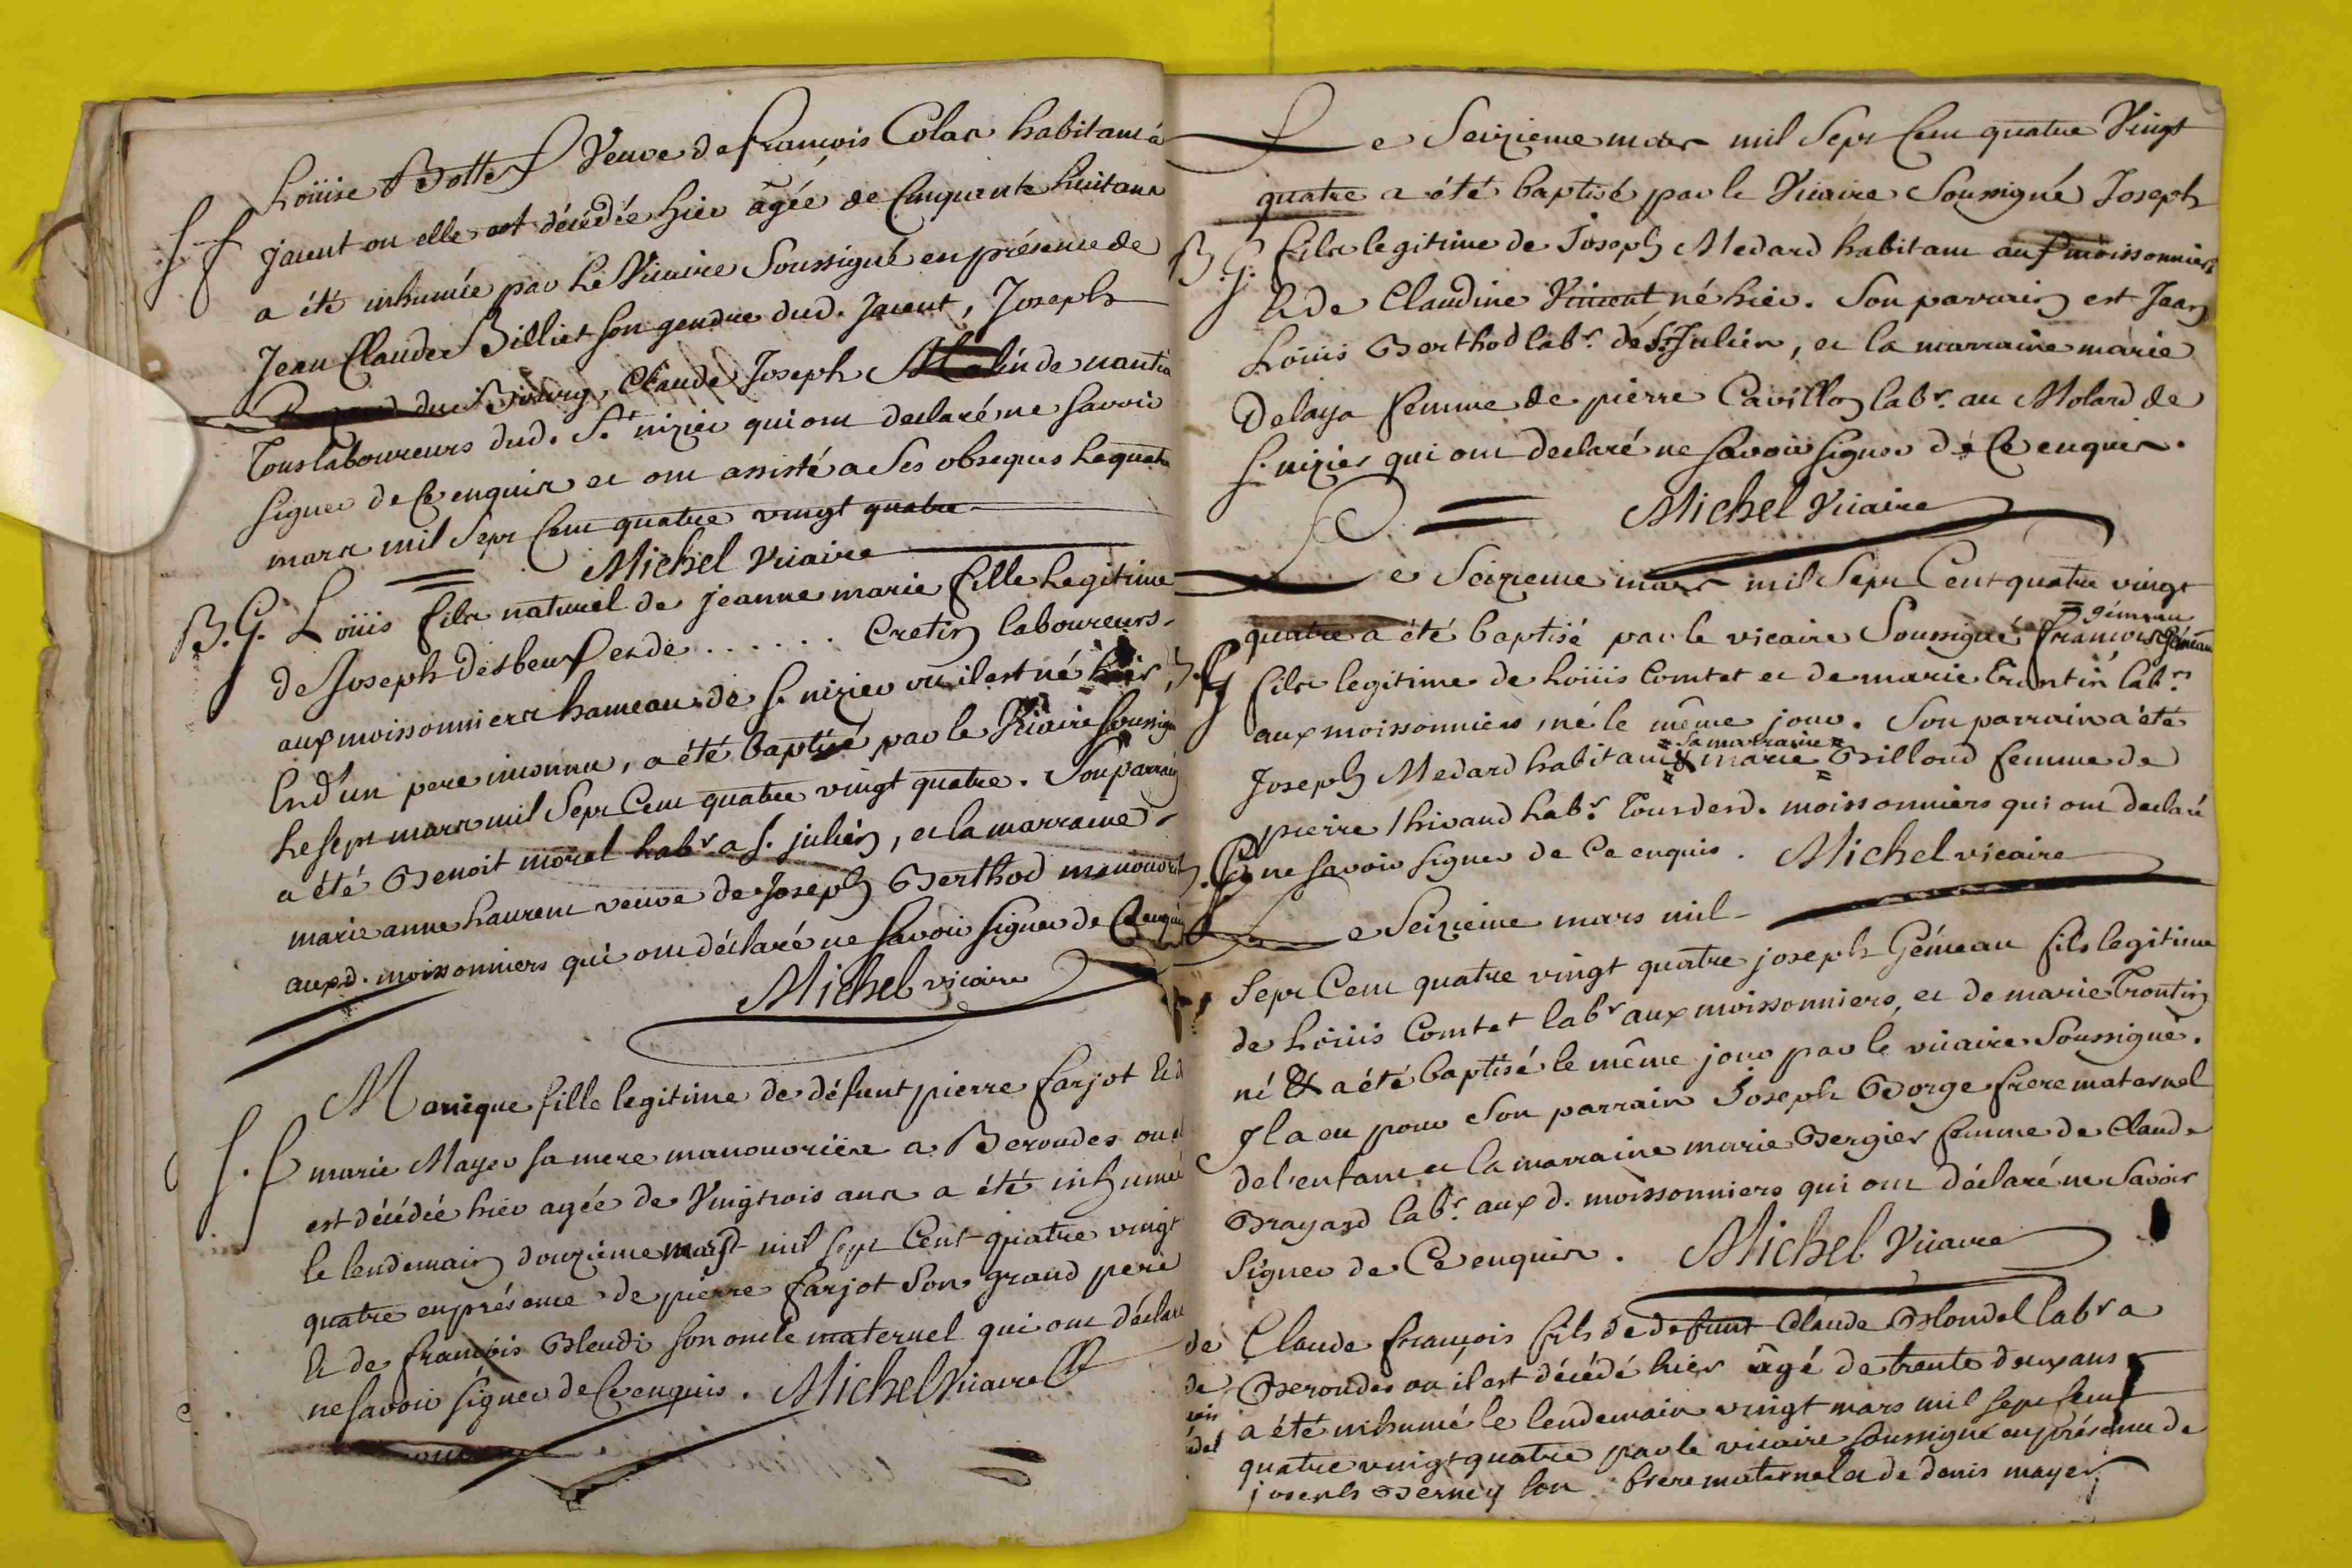 Louise Bottex Veuve de francois Colas habitant à
S. f. jaient ou elle est décédée hier âgée de Cinquante huit ans
a été inhumée par Le Vicaire Soussigné en présence de
Jean Claude Billiet son gendre dud. Jaient, Joseph
du Bourg, Claude Joseph de nantia
Tous Laboureurs dud. St. nizier qui ont declaré ne savoir
signer de Ce enquis et ont assisté a Ses obseques Le quatre
mars mil Sept Cent quatre vingt quatre
Michel Vicaire
B. G. Loüis fils naturel de jeanne marie fille Legitime
de Joseph Desbeuf et de . . . . . . Cretin laboureurs
aux moissonniers hameau de S. nizier ou il est né hier,
Et d'un pere inconnu, a été baptisé par le Vicaire soussigné
Le sept mars mil Sept Cent quatre vingt quatre. Son parrain
a été Benoit morel Labr. a S. julien, et la marraine
marie anne Laurent veuve de Joseph Berthod manouvri
aux d. moissonniers qui ont déclaré ne Savoir signer de Ce enquis
Michel vicaire
S. f. Manique fille legitime de défunt pierre farjot Et d
marie Mayer sa mere manouvriere a Beroudes ou e
est décédée hier agée de Vingtrois ans a été inhumée
le lendemain douzieme mars mil sept Cent quatre vingt
quatre en présence de pierre farjot Son grand pere
Et de francois Bleudi son oncle maternel qui ont déclaré
ne savoir signer de Ce enquis. Michel Vicaire
Le Seizieme mars mil Sept Cent quatre Vingt
quatre a été baptisé par le Vicaire Soussigné Joseph
B. G. fils legitime de Joseph Medard habitant aux moissonniers
Et de Claudine Vincent, né hier. Son parrain est Jean
Loüis Berthod labr. de St. Julien, et la marraine marie
Delaya femme de pierre Cavillon labr. au Molard de
S. nizier qui ont declaré ne savoir signer de Ce enquis.
Michel Vicaire
Le Seizieme mars mil Sept Cent quatre vingt
gémeau
quatre a été baptisé par le vicaire Soussigné francois Gémeau
B. G. fils legitime de Loüis Comtet et de marie Trontin labrs.
aux moissonniers, né le même jour. Son parrain a été
= Sa marraine =
Joseph Medard habitant & marie Billoud femme de
pierre Thivaud Labr. Tous desd. moissonniers qui ont declaré
ne savoir signer de Ce enquis. Michel vicaire
B. G. Le Seizieme mars mil
Sept Cent quatre vingt quatre joseph Gémeau fils legitime
de Loüis Comtet labr aux moissonniers, et de marie Trontin
né & a été baptisé le même jour par le vicaire Soussigné.
Il a eu pour Son parrain Joseph Borge frere maternel
de l'enfant et la marraine marie Bergier femme de Claude
Brayard labr. aux d. moissonniers qui ont déclaré ne Savoir
Signer de Ce enquis. Michel Vicaire
Claude françois fils de defunt Claude Blondel labr a
Beroudes ou il est décédé hier âgé de trente deux ans
a été inhumé le lendemain vingt mars mil sept Cent
quatre vingt quatre par le vicaire soussigné en présence de
joseph Berney son frere maternel et de denis mayer